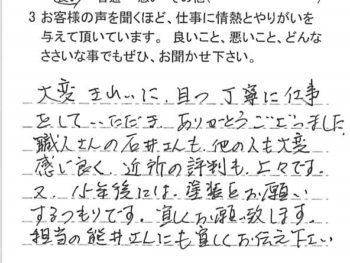 3 お客様の声を聞くほど、仕事に情熱とやりがいを
与えて頂いています。 良いこと、悪いこと、どんな
ささいな事でもぜひ、お聞かせ下さい。
大変 きれいに、且つ 丁寧に仕事
をして いただき、ありがとうございました。
職人さんの石井さんも、他の人も大変
感じ良く、近所の評判も、上々です。
又、15年後には、塗装をお願い
するつもりです。宜しくお願い致します。
担当の能井さんにも宜しくお伝え下さい